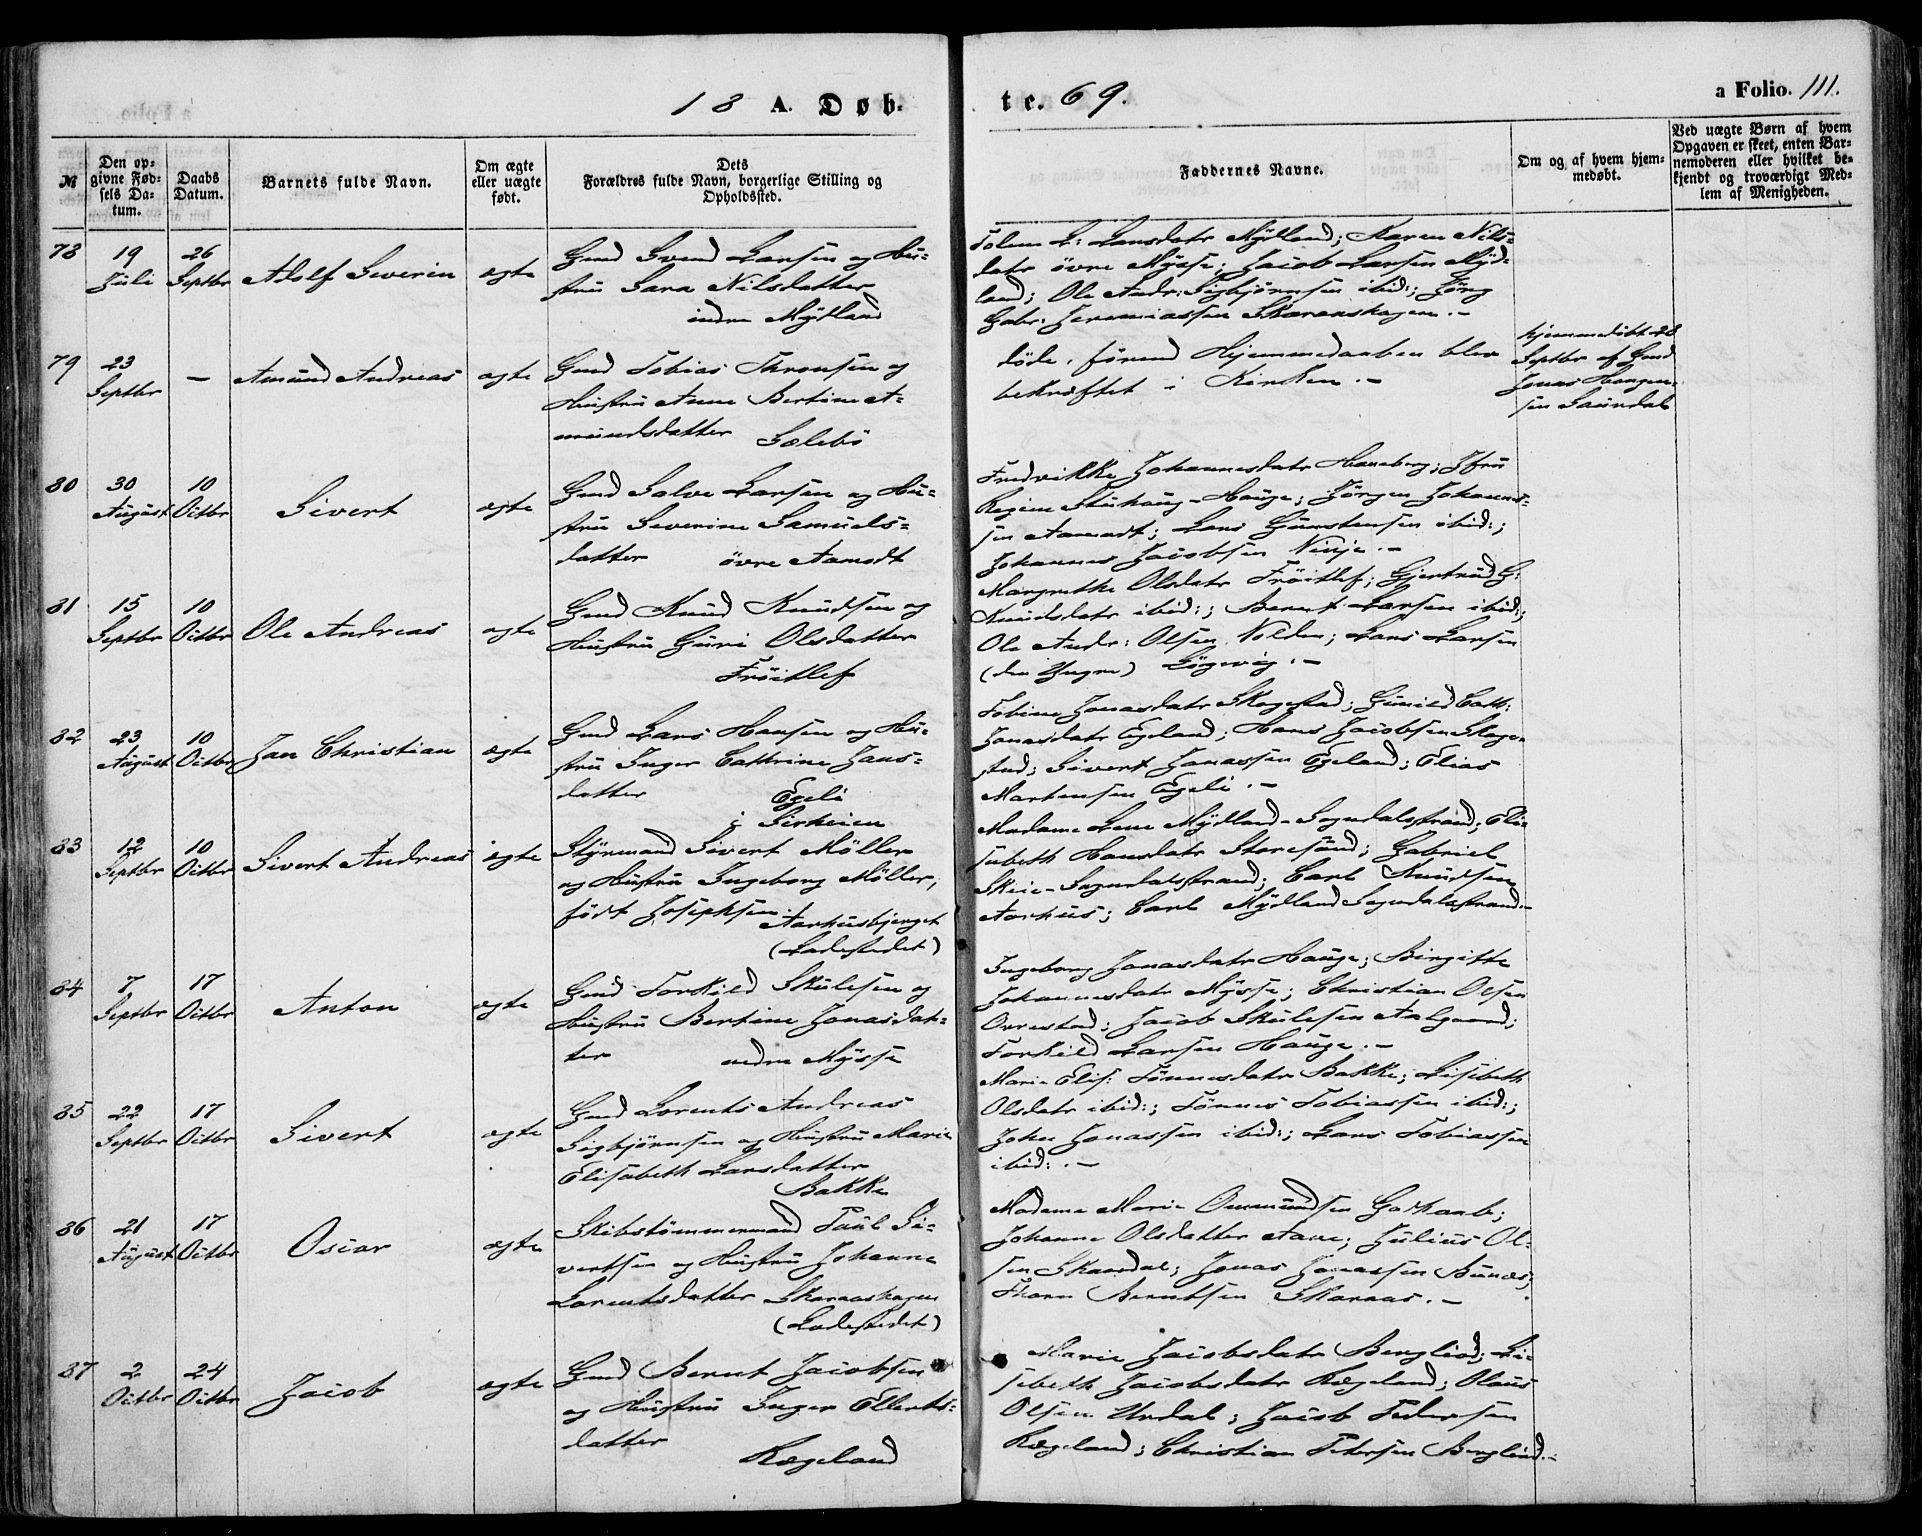 18 A. Døb-
te. 69.
a Folio. 111.
№
Den op-
givne Fød-
sels Da-
tum.
Daabs
Datum.
Barnets fulde Navn.
Om ægte
eller uægte
født.
Dets
Forældres fulde Navn, borgerlige Stilling og
Opholdssted.
Faddernes Navne.
Om og af hvem hjem-
medøbt.
Ved uægte Børn af hvem
Opgaven er skeet, enten Bar-
nemoderen eller hvilket be-
kjendt og troværdigt Med-
lem af Menigheden.
78
19
Juli
26
Septbr
Adolf Severin
ægte
Gmd Svend Larsen og Hu-
stru Sara Nilsdatter
indre Mydland
Larsdatr Mydland; Karen Nils-
datr övre Mysse; Jacob Larsen Myd-
land; Ole Andr: Sigbjörnsen ibid:; Jörg
Gabr: Jeremiassen Skaraaskagen.-
79
23
Septbr
-
Amund Andreas
ægte
Gmd Tobias Thronsen og
Hustru Anne Bertine A-
mundsdatter Sælebö
döde, förend Hjemmedaaben blev
bekræftet i Kirken.-
hjemmedöbt 28
Septbr af Gmd
Jonas Haagen-
sen Saurdal
80
30
August
10
Octbr
Sivert
ægte
Gmd Salve Larsen og Hu-
stru Severine Samuels-
datter övre Aamodt
Fredrikke Johannesdatr Haneberg; Jfru
Regine Stuhaug-Hauge; Jörgen Johannes-
sen Aamodt; Lars Gunstensen ibid:;
Johannes Jacobsen Ninje.-
81
15
Septbr
10
Octbr
Ole Andreas
ægte
Gmd Knud Knudsen og
Hustru Guri Olsdatter
Fröitlef
Margrethe Olsdatr Fröitlef; Gjertrud G:
Knudsdatr ibid:; Bernt Larsen ibid:;
Ole Andr: Olsen Nolden; Lars Larsen
(den Yngre) Lögevig.-
82
23
August
10
Octbr
Jan Christian
ægte
Gmd Lars Hansen og Hu-
stru Inger Cathrine Jans-
datter Egeli
i Sirheien
Tobine Jonasdatr Skogestad; Gunild Cath:
Jonasdatr Egeland; Hans Jacobsen Skoge-
stad; Sivert Jonassen Egeland; Elias
Martensen Egeli.-
83
12
Septbr
10
Octbr
Sivert Andreas
ægte
Styrmand Sivert Möller
og Hustru Ingeborg Möller,
födt Josephsen Aarhusbjerget
(Ladestedet)
Madame Lene Mydland-Sogndalstrand; Eli-
sabeth Hansdatr Storesund; Gabriel
Skeie-Sogndalstrand; Carl Knudsen
Aarhus; Carl Mydland Sogndalstrand.-
84
7
Septbr
17
Octbr
Anton
ægte
Gmd Torkild Skulesen og
Hustru Bertine Jonasdat-
ter nedre Mysse
Ingeborg Jonasdatr Hauge; Birgitte
Johannesdatr Mysse; Christian Olsen
Orrestad; Jacob Skulesen Aalgaard;
Torkild Larsen Hauge.-
85
22
Septbr
17
Octbr
Sivert
ægte
Gmd Lorents Andreas
Sigbjörnsen og Hustru Marie
Elisabeth Larsdatter
Bakke
Marie Elis: Tönnesdatr Bakke; Lisebeth
Olsdatr ibid:; Tönnes Tobiassen ibid:;
John Jonassen ibid:; Lars Tobiassen
ibid:.-
86
21
August
17
Octbr
Oscar
ægte
Skibstömmermand Paul Si-
vertsen og Hustru Johanne
Lorentsdatter Skaraaskagen
(Ladestedet)
Madame Marie Ommundsen Godhaab;
Johanne Olsdatter Aase; Julius Ol-
sen Skaardal; Jonas Jonassen Bunæs;
Thore Berntsen Skaraas.-
87
2
Octbr
24
Octbr
Jacob
ægte
Gmd Bernt Jacobsen
og Hustru Inger Ellerts-
datter
Rægeland
Marie Jacobsdatr Bergliod; Li-
sebeth Jacobsdatr Rægeland; Olaus
Olsen Urdal; Jacob Pedersen
Rægeland; Christian Petersen Bergliod.-